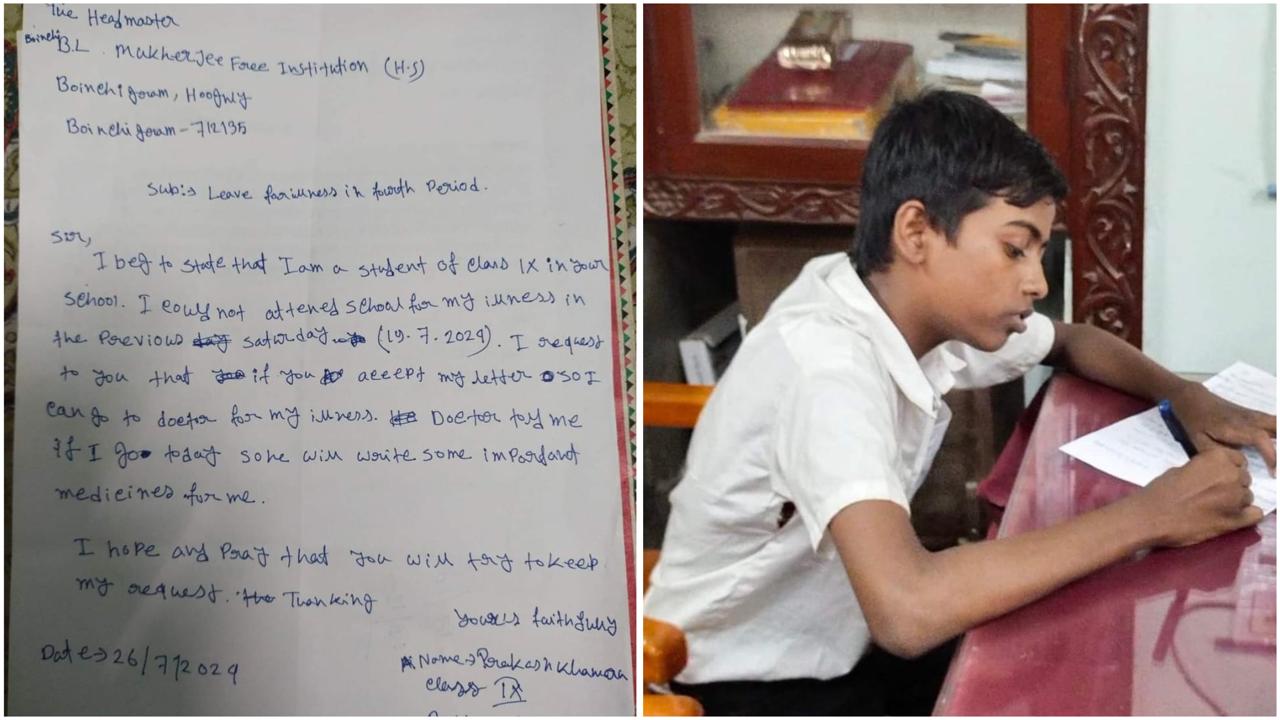 The Headmaster
Boinchi B.L. Mukherjee Free Institution (H.S)
Boinchigram, Hooghly
Boinchigram - 712135
Sub:→ Leave for illness in fourth Period.
Sir,
I beg to state that I am a student of class IX in your
school. I could not attened school for my illness in
the previous day saturday (19.7.2024). I request
to you that if you accept my letter so I
can go to doctor for my illness. Doctor told me
if I go today so he will write some important
medicines for me.
I hope and Pray that you will try to keep
my request. Thanking
Yours faithfully
Date→ 26/7/2024
Name→ Prakash Khamaru
class IX